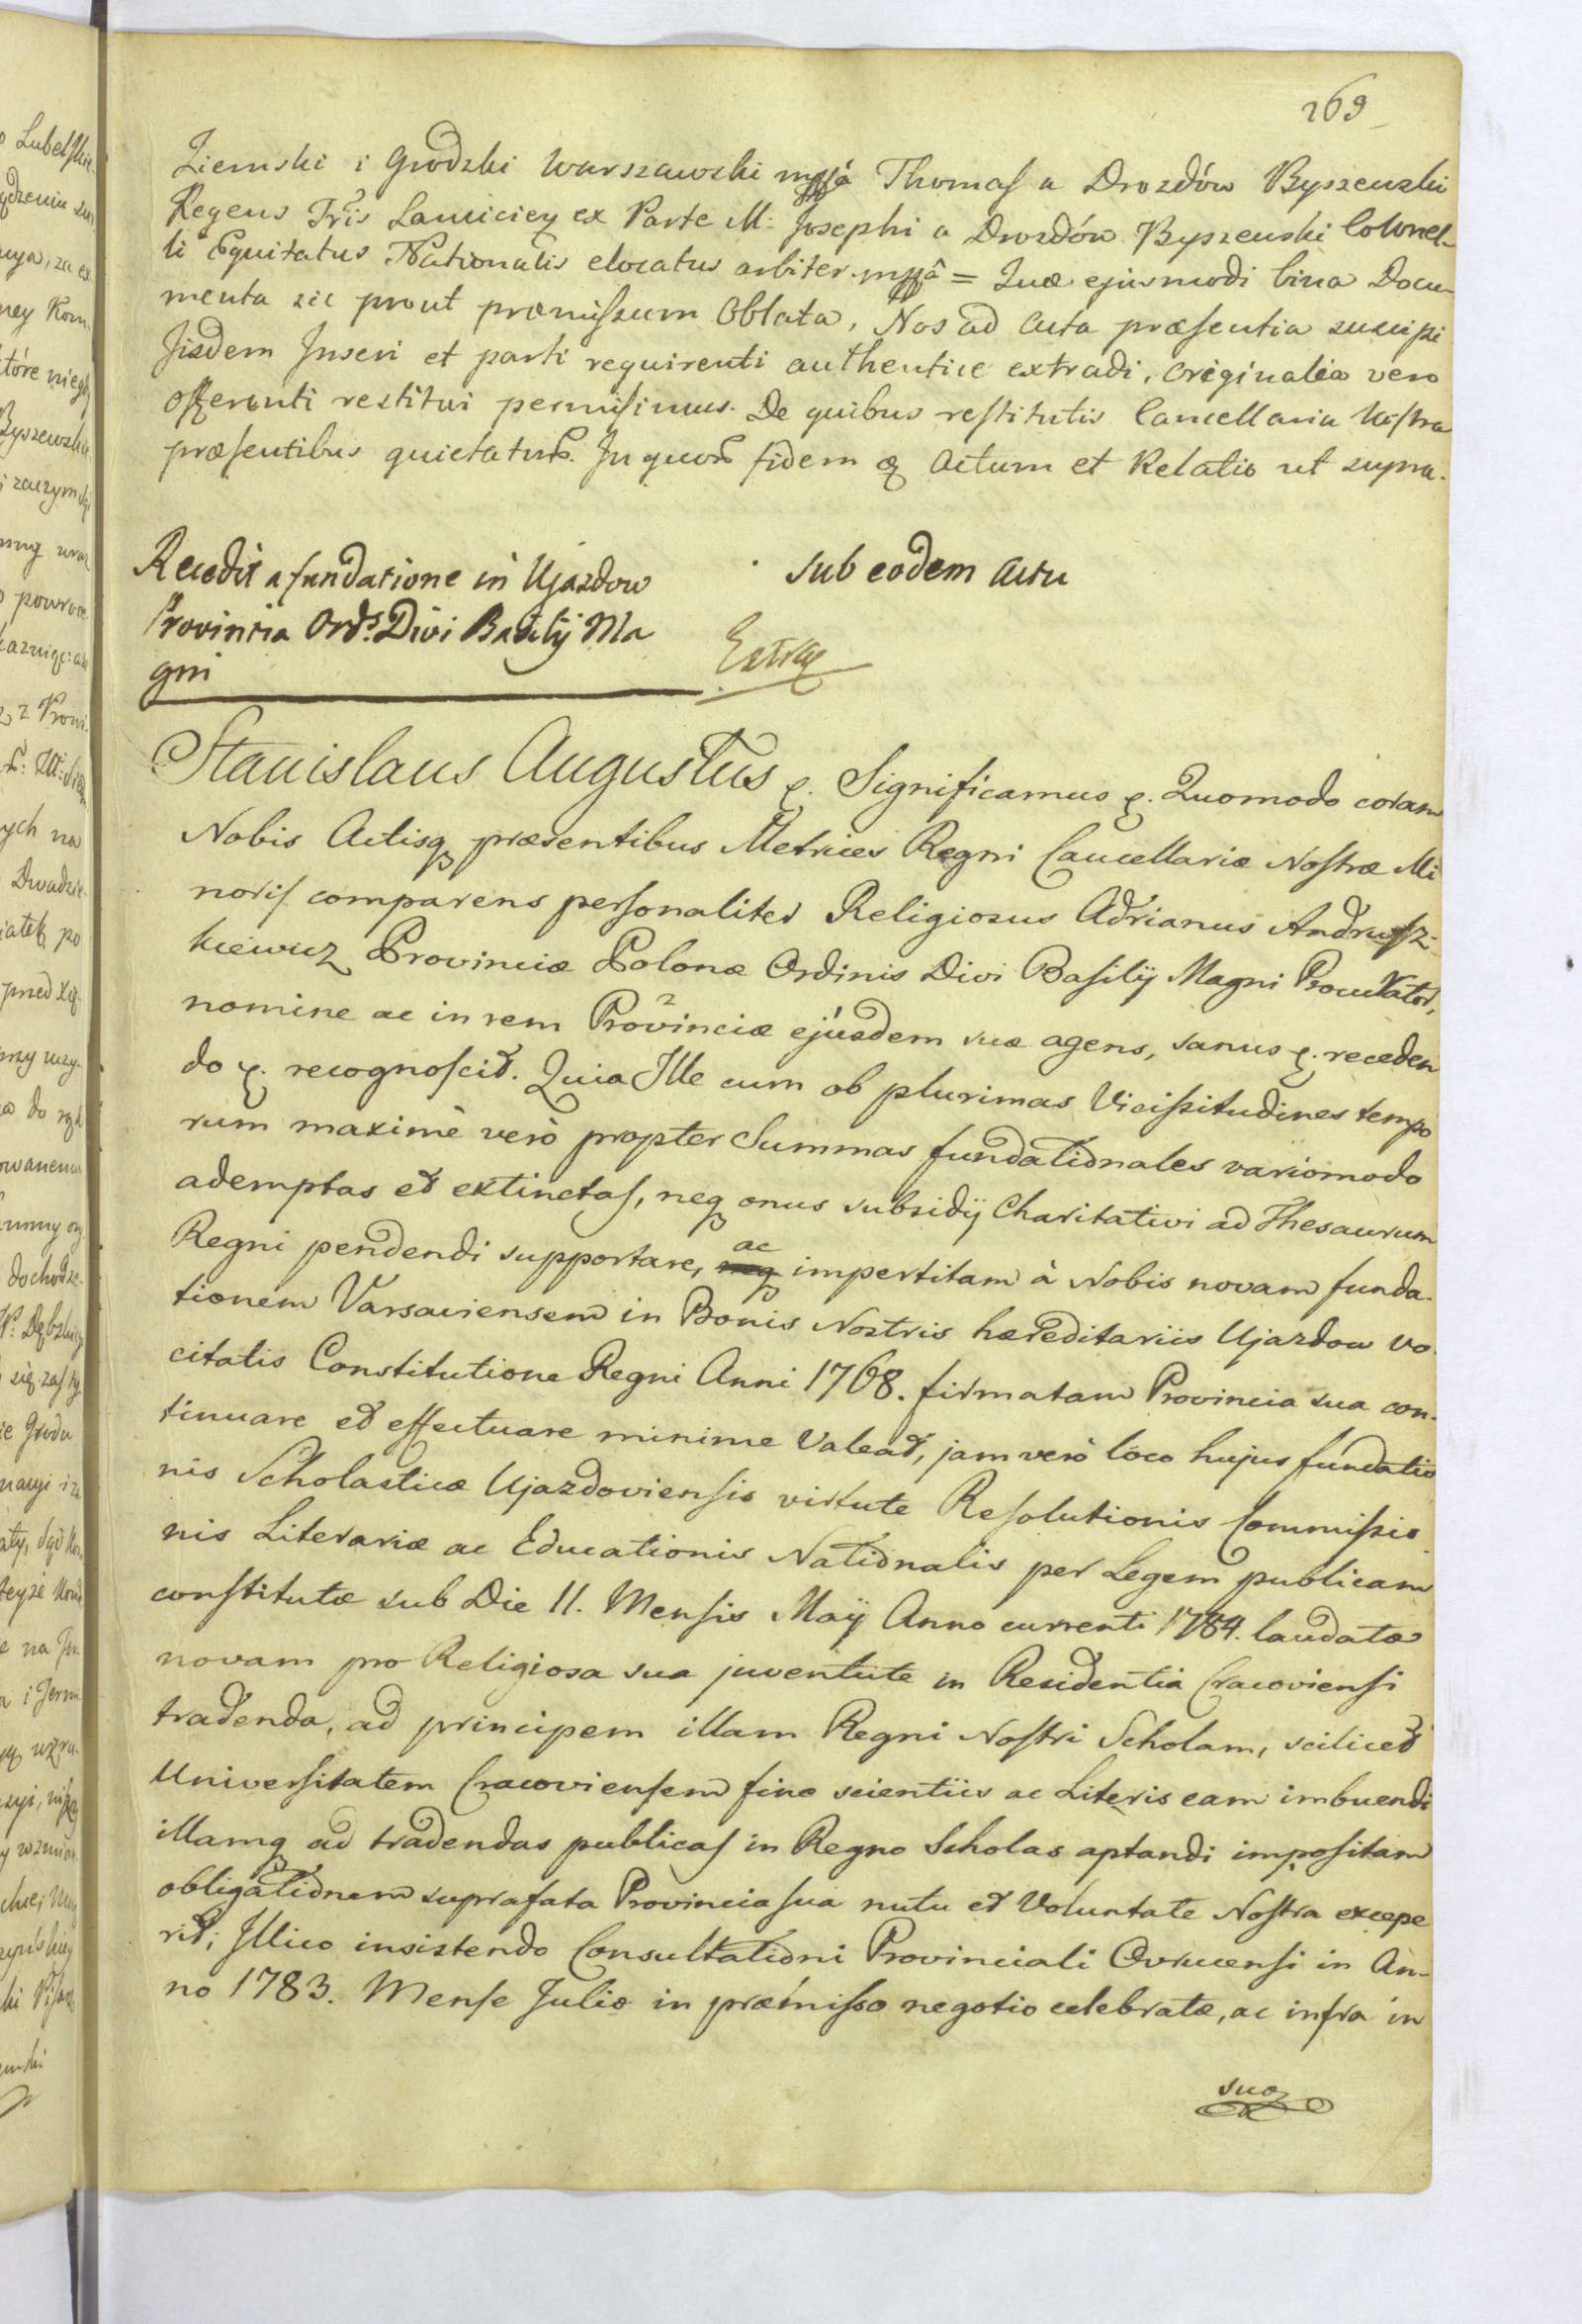 269
Ziemski i Grodzki Warszawski mppâ Thomas a Drozdów Byszewski
Regens Tris Lawiciey ex Parte M: Josephi a Drozdów Byszewski Colonel-
li Equitatus Nationalis elocatus arbiter mppâ = Quæ ejusmodi bina Docu-
menta sic prout præmissum Oblata, Nos ad Acta præsentia suscipi
Jisdem Inseri et parti requirenti authentice extradi, originalia vero
offerenti restitui permisimus. De quibus restitutis Cancellaria Nostra
præsentibus quietatur. In quorum fidem &c Actum et Relatio ut supra.
Recedit a fundatione in Ujazdow
Provincia Ords. Divi Basilij Ma
gni
Sub eodem Actu
Extrac
Stanislaus Augustus &. Significamus &. Quomodo coram
Nobis Actisq præsentibus Metrices Regni Cancellariæ Nostræ Mi
noris comparens personaliter Religiosus Adrianus Andrusz-
kiewicz Provinciæ Polonæ Ordinis Divi Basilij Magni Procurator,
nomine ac in rem Provinciæ ejusdem suæ agens, sanus &. receden
do &. recognoscit. Quia Ille cum ob plurimas Vicissitudines tempo
rum maximè verò propter Summas fundationales variomodo
ademptas et extinctas, neq onus subsidij Charitativi ad Thesaurum
Regni pendendi supportare, ac impertitam à Nobis novam funda-
tionem Varsaviensem in Bonis Nostris hæreditariis Ujazdow vo-
citatis Constitutione Regni Anni 1768. firmatam Provincia sua con-
tinuare et effectuare minime Valeat, jam verò loco hujus fundatio
nis Scholasticæ Ujazdoviensis virtute Resolutionis Commissio
nis Literariæ ac Educationis Nationalis per Legem publicam
constitutæ sub Die 11. Mensis Maij Anno currenti 1784. laudatæ
novam pro Religiosa sua juventute in Residentia Cracoviensi
tradenda, ad principem illam Regni Nostri Scholam, scilicet
Universitatem Cracoviensem fine scientiis ac Literis eam imbuendi
illamq ad tradendas publicas in Regno Scholas aptandi impositam
obligationem suprafata Provincia sua nutu et Voluntate Nostra excepe
rit; Illico insistendo Consultationi Provinciali Ovrucensi in An-
no 1783. Mense Julio in præmisso negotio celebratæ, ac infra in
suo